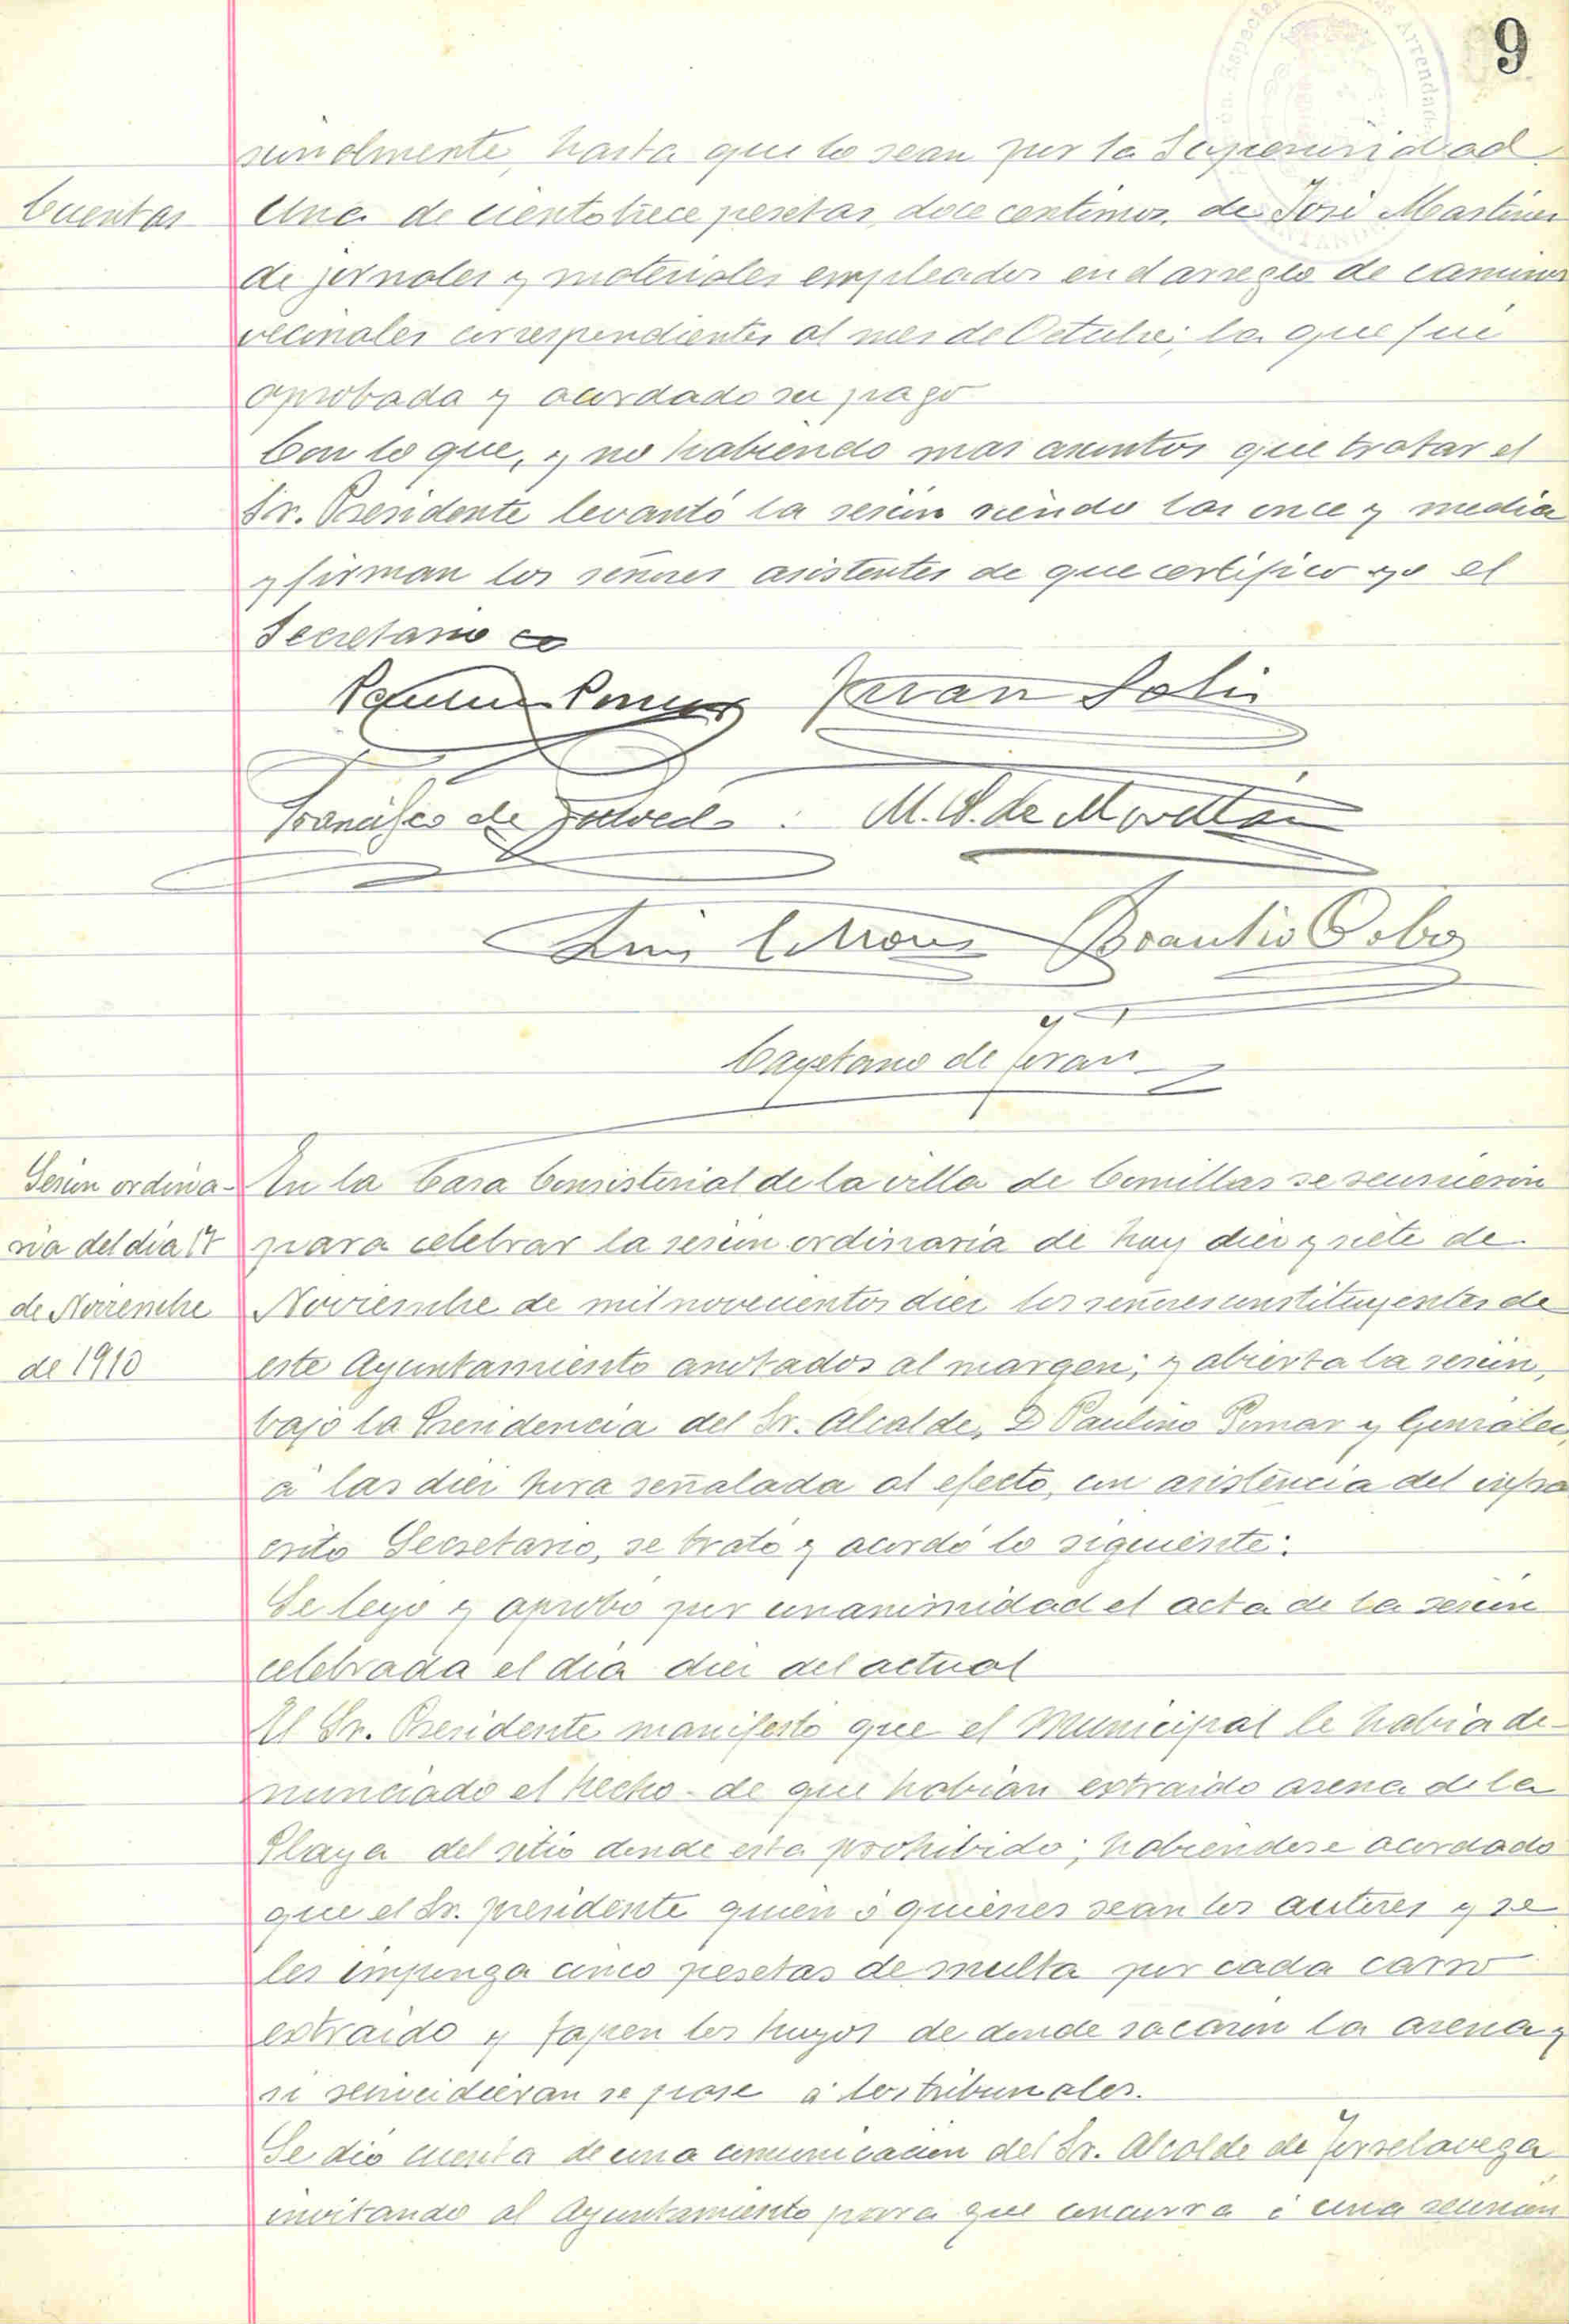 9
sionalmente, hasta que lo sean por la Superioridad.
Cuentas
Una de ciento trece pesetas, doce centimos, de José Martinez
de jornales y materiales empleados en el arreglo de caminos
vecinales correspondientes al mes de Octubre; la que fué
aprobada y acordado su pago
Con lo que, y no habiendo mas asuntos que tratar el
Sr. Presidente levantó la sesion siendo las once y media
y firman los señores asistentes de que certifico yo el
Secretario
Juan Solis
Francisco de
M. S. de Movellán
Luis Brautio Cobo
Cayetano de Teran
Sesion ordina-
ria del dia 17
de Noviembre
de 1910
En la Casa Consistorial de la villa de Comillas se reunieron
para celebrar la sesion ordinaria de hoy diez y siete de
Noviembre de mil novecientos diez los señores constituyentes de
este Ayuntamiento anotados al margen; y abierta la sesion,
bajo la Presidencia del Sr. Alcalde, D Paulino Pomar y Gonzalez,
á las diez hora señalada al efecto, con asistencia del infra
crito Secretario, se trató y acordó lo siguiente:
Se leyo y aprobó por unanimidad el acta de la sesion
celebrada el dia diez del actual
El Sr. Presidente manifestó que el Municipal le habia de-
nunciado el hecho de que habian extraido arena de la
Playa del sitio donde esta prohibido; habiendose acordado
que el Sr. presidente quien ó quienes sean los autores y se
les imponga cinco pesetas de multa por cada carro
extraido y tapen los huyos de donde sacaron la arena y
si reincidieran se pase á los tribunales.
Se dio cuenta de una comunicacion del Sr. Alcalde de Torrelavega
invitando al Ayuntamiento para que concurra á una reunion